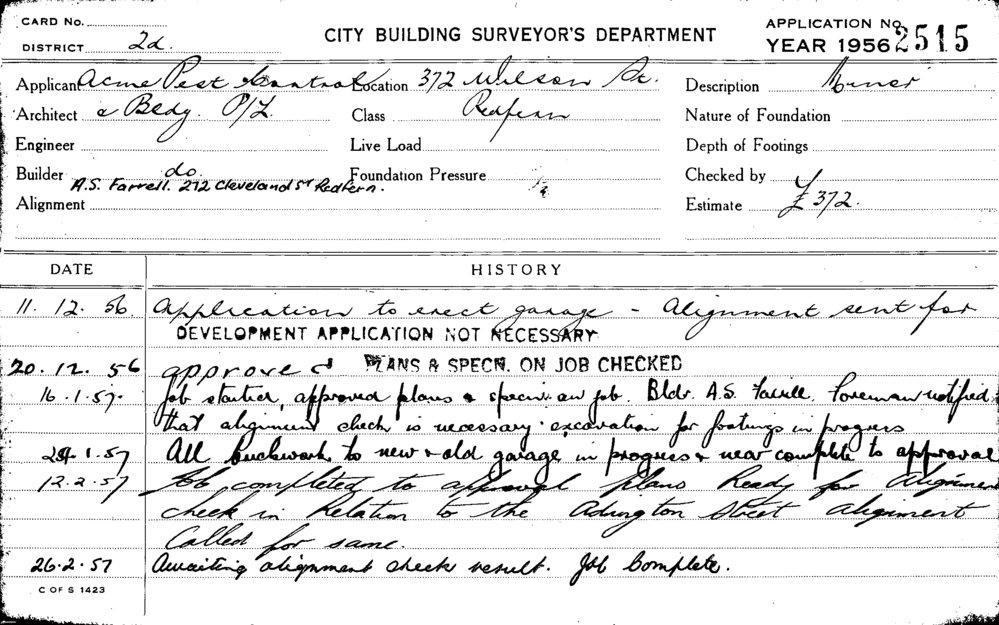 CARD No.
DISTRICT 2d.
CITY BUILDING SURVEYOR'S DEPARTMENT
APPLICATION No. 2515
YEAR 1956
Applicant Acme Pest Control Location 372 Wilson St. Description Minor
Architect & Bldg. P/L. Class Redfern Nature of Foundation
Engineer Live Load Depth of Footings
Builder do. Foundation Pressure Checked by
A.S. Farrell. 212 Cleveland St Redfern.
Alignment Estimate £372.
DATE HISTORY
11. 12. 56 Application to erect garage - Alignment sent for
DEVELOPMENT APPLICATION NOT NECESSARY
20. 12. 56 approved PLANS & SPECN. ON JOB CHECKED
16.1.57. Job started, approved plans & specin on job. Bldr. A.S. Farrell. Foreman notified
that alignment check is necessary. excavation for footings in progress
24.1.57 All brickwork to new & old garage in progress & near complete to approval
12.2.57 Job completed to approval plans Ready for Alignment
check in Relation to the Adington Street alignment
Called for same.
26.2.57 Awaiting alignment check result. Job Complete.
C OF S 1423